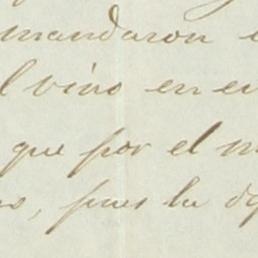 mandaron
l vino en en
que por el m
, pues la